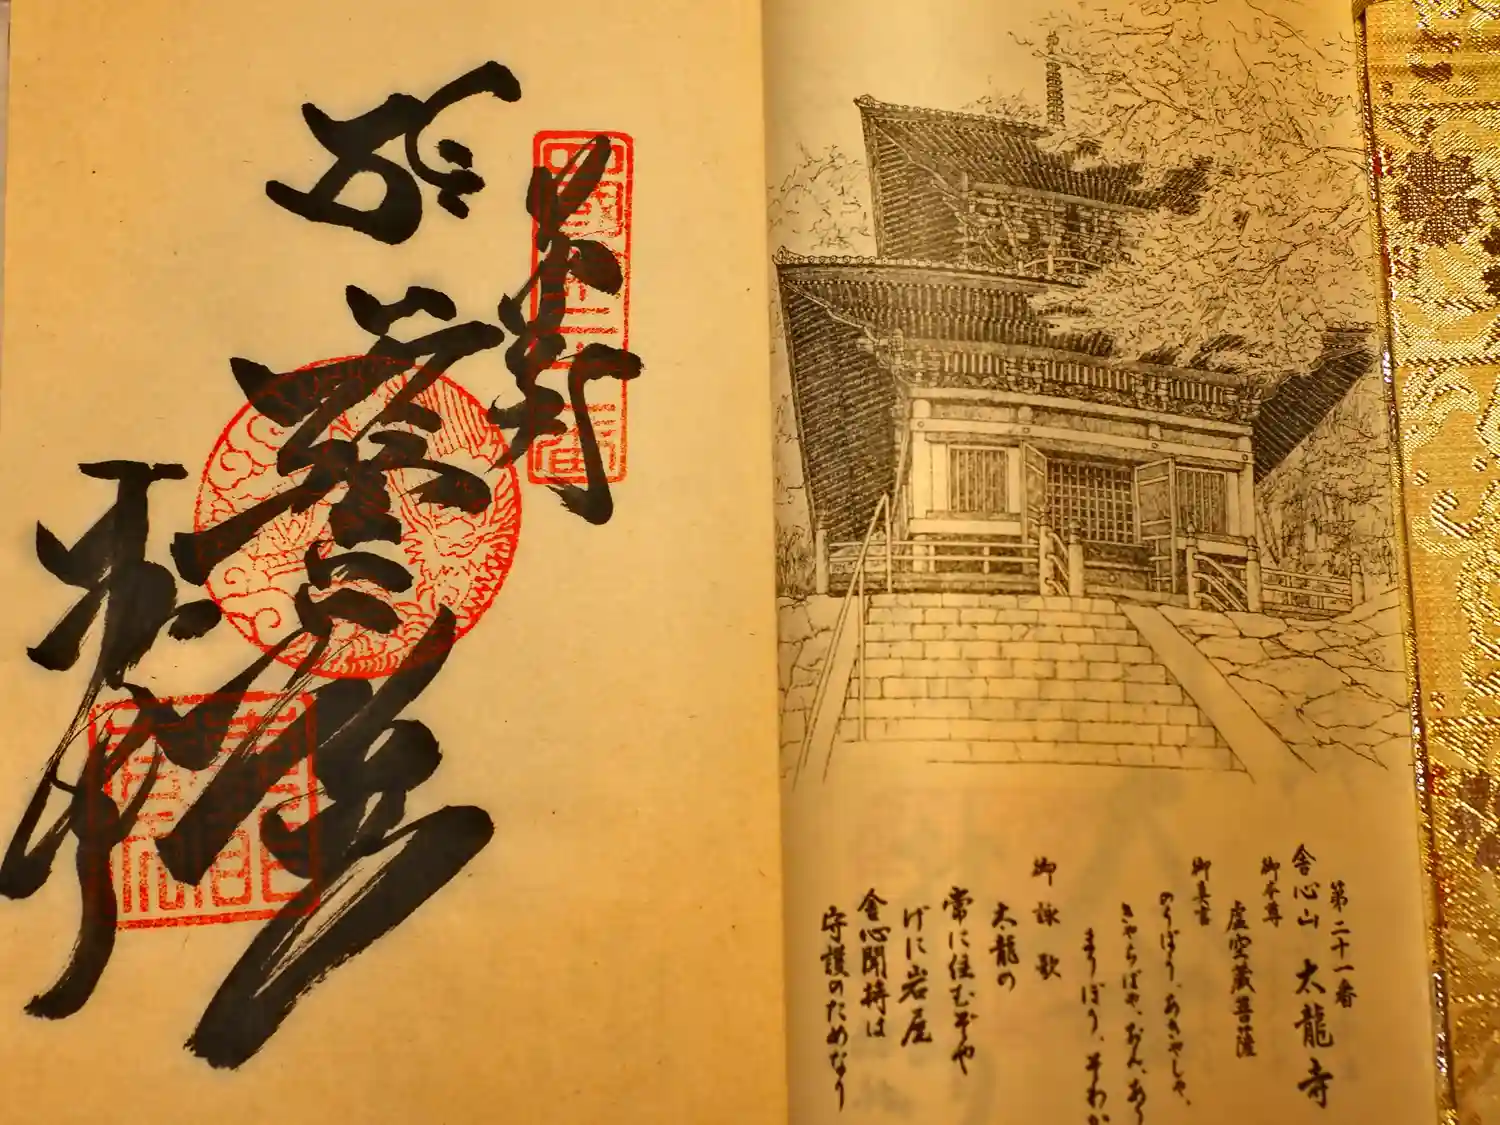 四國第二十一番
第二十一番
舎心山 太龍寺
御本尊
虚空蔵菩薩
御真言
のうぼう、あきゃしゃ、
きゃらばや、おん、あり
まりぼり、そわか
御詠歌
太龍の
常に住むぞや
げに岩屋
舎心聞持は
守護のためなり